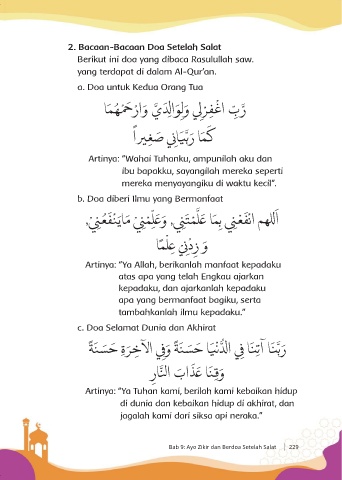 2. Bacaan-Bacaan Doa Setelah Salat
Berikut ini doa yang dibaca Rasulullah saw.
yang terdapat di dalam Al-Qur’an.
a. Doa untuk Kedua Orang Tua
رَبِّ اغْفِرْلِيْ وَلِوَالِدَيَّ وَارْحَمْهُمَا
كَمَا رَبَّيَانِيْ صَغِيْرًا
Artinya: “Wahai Tuhanku, ampunilah aku dan
ibu bapakku, sayangilah mereka seperti
mereka menyayangiku di waktu kecil”.
b. Doa diberi Ilmu yang Bermanfaat
اَللهم انْفَعْنِيْ بِمَا عَلَّمْتَنِيْ, وَعَلِّمْنِيْ مَايَنْفَعُنِيْ,
وَ زِدْنِيْ عِلْمًا
Artinya: “Ya Allah, berikanlah manfaat kepadaku
atas apa yang telah Engkau ajarkan
kepadaku, dan ajarkanlah kepadaku
apa yang bermanfaat bagiku, serta
tambahkanlah ilmu kepadaku.”
c. Doa Selamat Dunia dan Akhirat
رَبَّنَا آتِنَا فِي الدُّنْيَا حَسَنَةً وَفِي الآخِرَةِ حَسَنَةً
وَقِنَا عَذَابَ النَّارِ
Artinya: “Ya Tuhan kami, berilah kami kebaikan hidup
di dunia dan kebaikan hidup di akhirat, dan
jagalah kami dari siksa api neraka.”
Bab 9: Ayo Zikir dan Berdoa Setelah Salat | 229